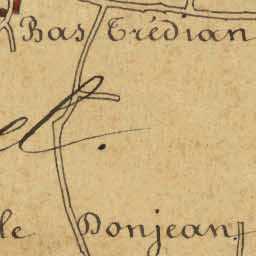 Bas Trédian
el.
le Donjean